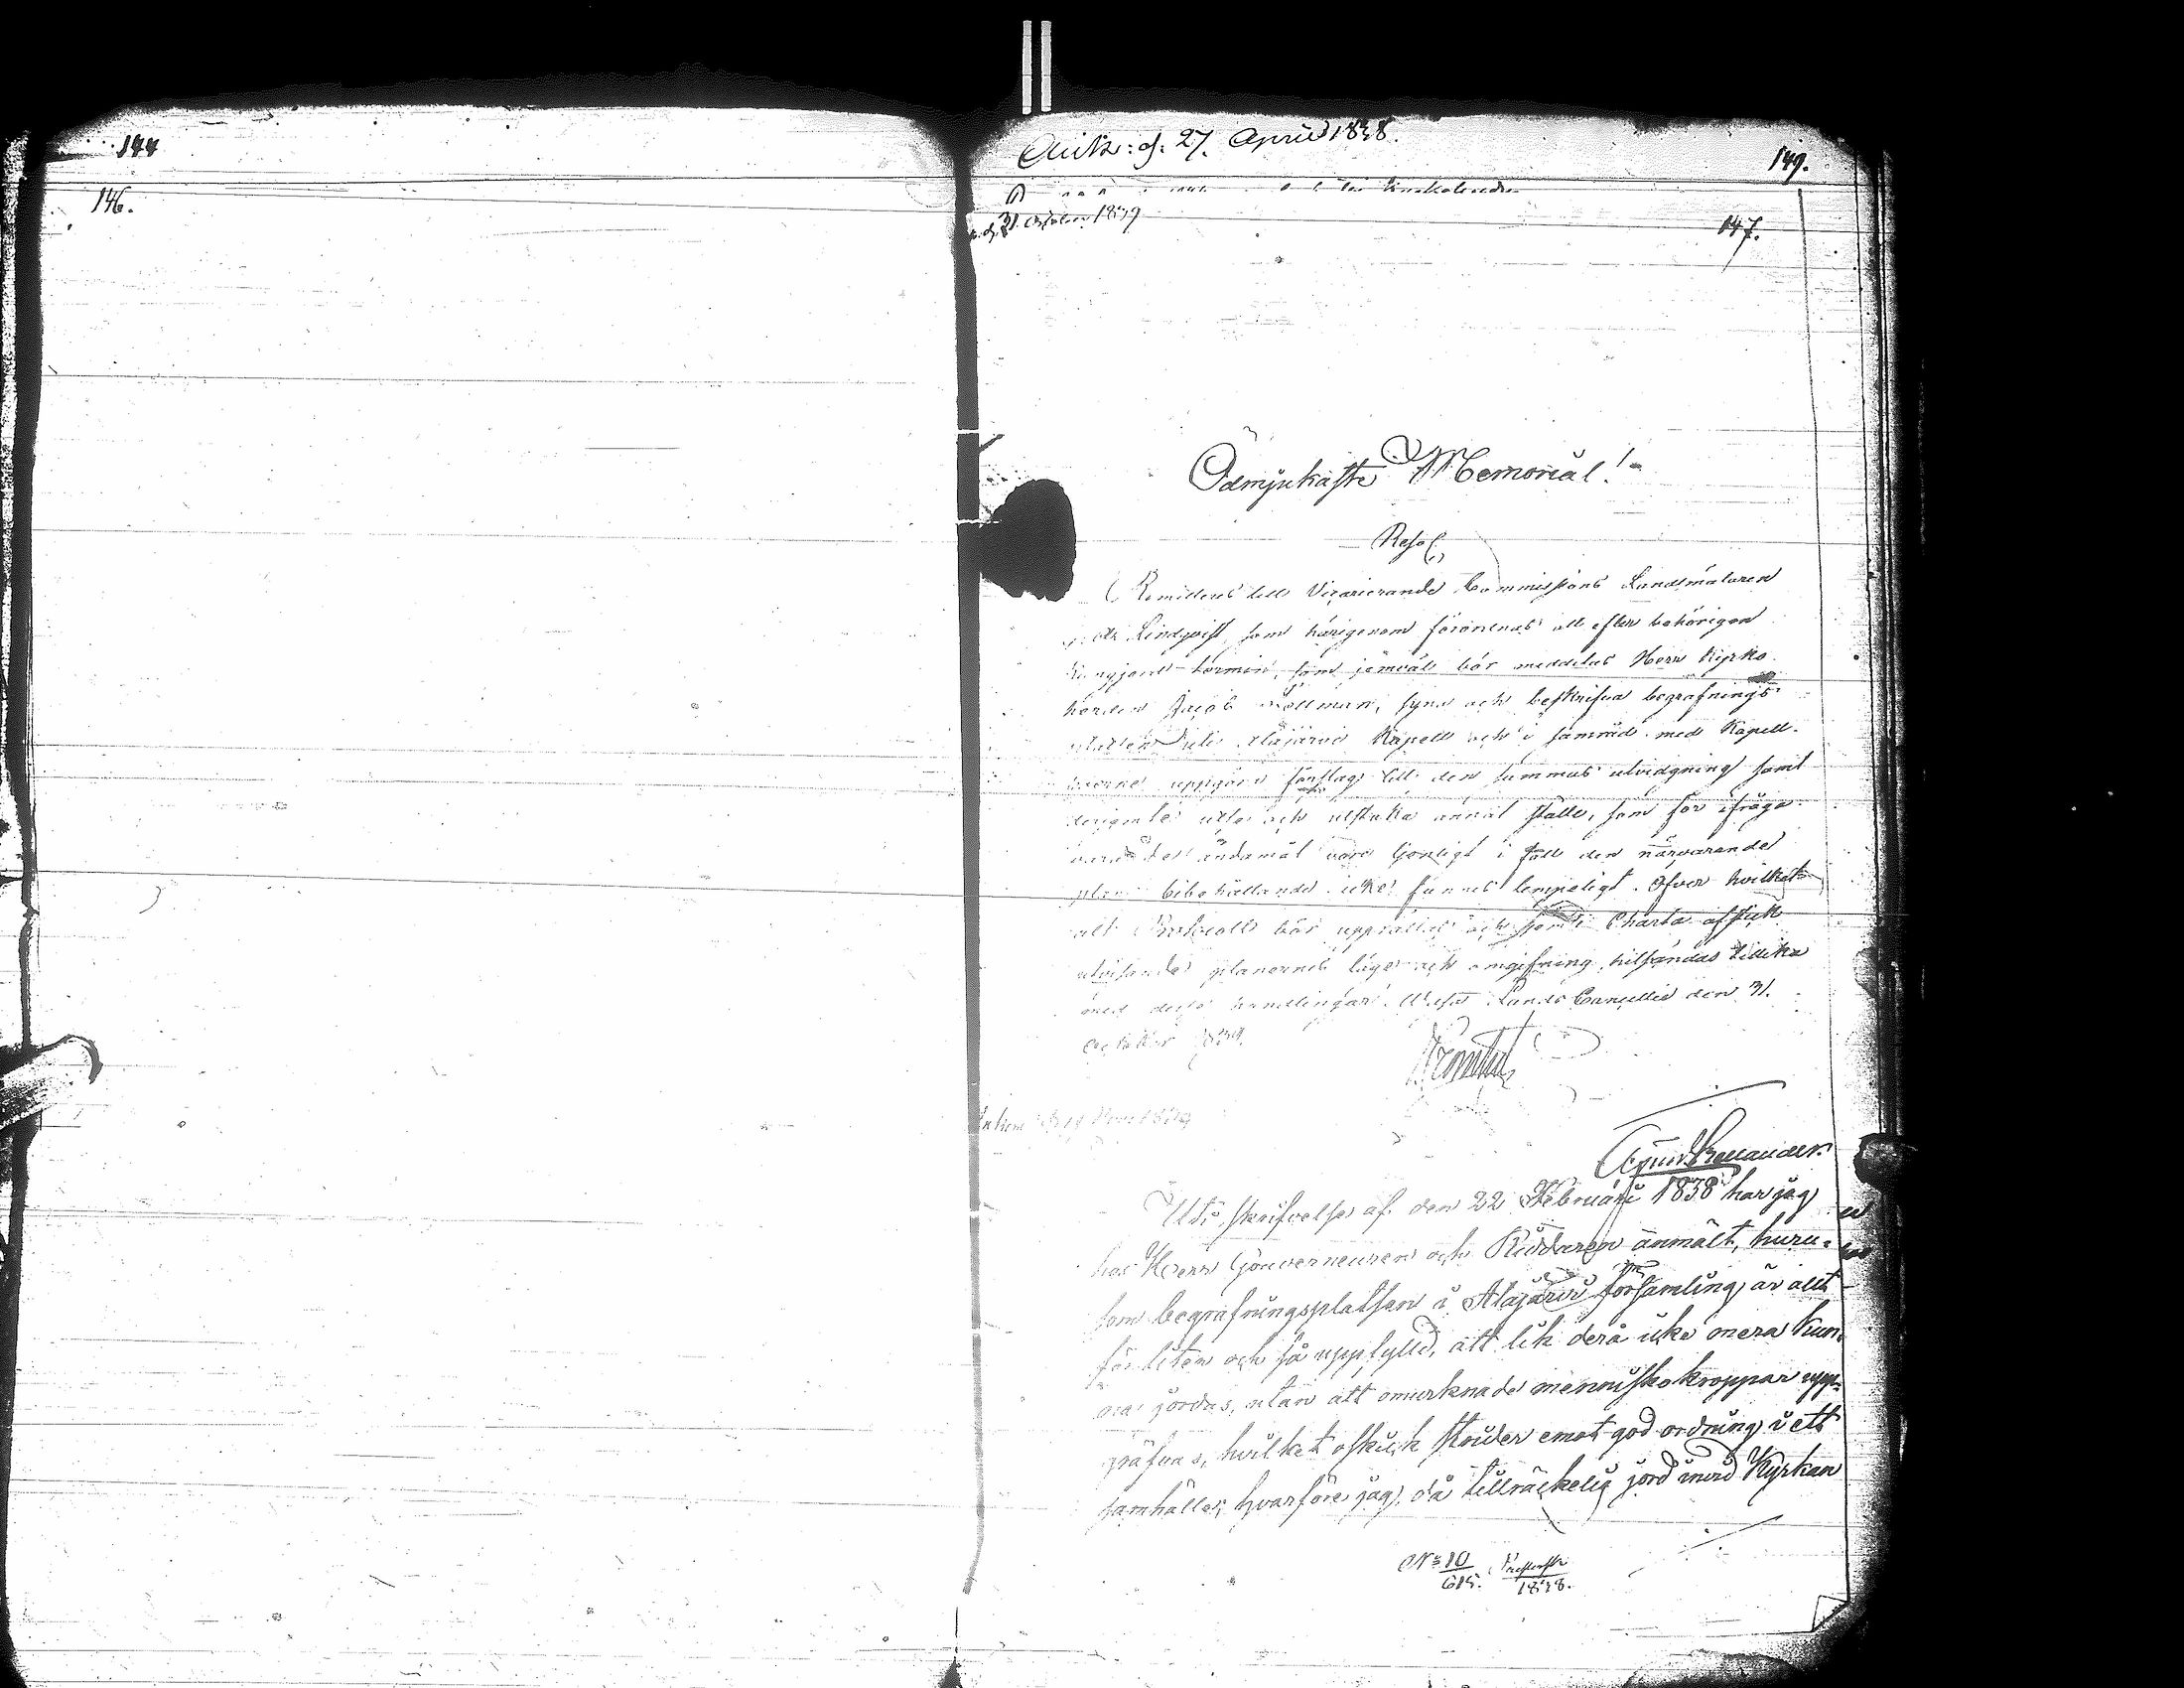 144
146.
Ank: d. 27. April 1838.
149.
d. 31 October 1839
147.
Ödmjukaste Memorial!
Resol;
Remitteras till Vicarierande Commissions Landtmätaren
Lindqvist, som härigenom förordnas att efter behörigen
kungjord termin, som jemväl bör meddelas Herr Kyrko
herden Jacob, syna och beskrifva begrafnings
platsen uti Alajärvi Kapell och i samråd med Kapell-
boerne uppgöra förslag till den sammas utvidgning samt
derjemte utse och utstaka annat ställe, som för ifråga
varande ändamål vore tjenligt i fall den närvarande
plan bibehållande icke funnes lempeligt. Öfver hvilket
allt Protocoll bör upprättas och samt Charta
utvisande planernes läge och omgifning, hitsändas tillika
med dessa handlingar. Wasa Lands Cancellie den 31.
October 1839.
Ank 1839
Uti skrifvelse af den 22 Februari 1838 har jag
hos Herr Gouverneuren och Riddaren anmält, huru-
som begrafningsplatsen i Alajärvi församling är allt
för liten och så uppfylld, att lik derå icke mera kun-
na jordas, utan att omurknade menniskokroppar upp-
gräfvas, hvilket oskick strider emot god ordning i ett
samhälle; hvarföre jag, då tillräckelig jord invid Kyrkan
N: 10
615.
1838.